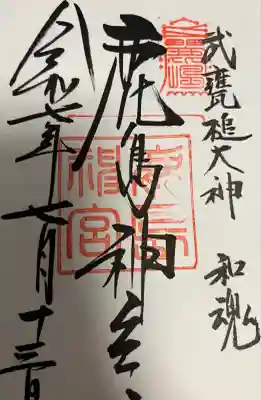 武甕槌大神 和魂
鹿島神宮
令和七年七月十三日
鹿島神宮